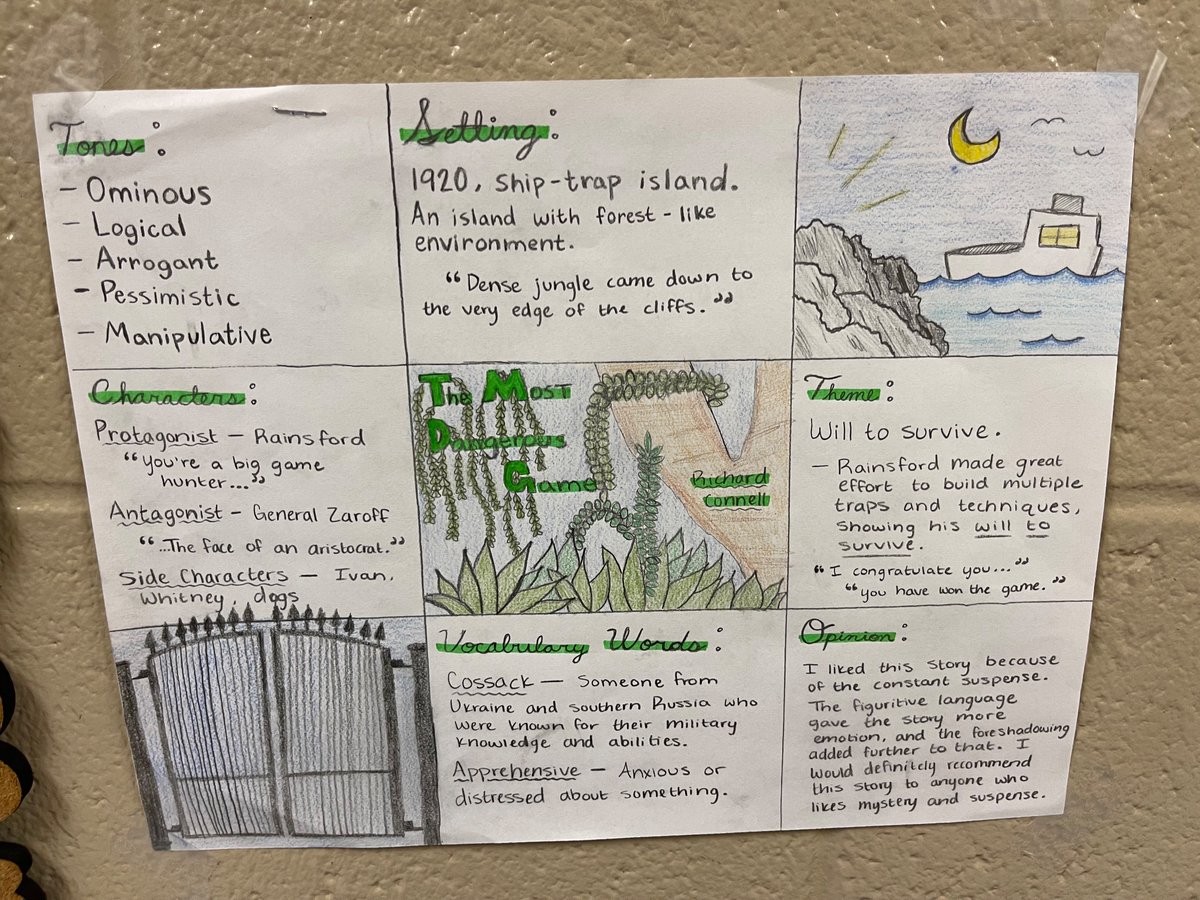 Tones:
- Ominous
- Logical
- Arrogant
- Pessimistic
- Manipulative
Setting:
1920, Ship-trap island.
An island with forest-like
environment.
"Dense jungle came down to
the very edge of the cliffs."
Characters:
Protagonist - Rainsford
"You're a big game
hunter..."
Antagonist - General Zaroff
"...The face of an aristocrat."
Side Characters - Ivan,
Whitney, dogs
The Most
Dangerous
Game
Richard
Connell
Theme:
Will to survive.
- Rainsford made great
effort to build multiple
traps and techniques,
showing his will to
survive.
"I congratulate you..."
"you have won the game."
Vocabulary Words:
Cossack - Someone from
Ukraine and southern Russia who
were known for their military
knowledge and abilities.
Apprehensive - Anxious or
distressed about something.
Opinion:
I liked this story because
of the constant suspense.
The figuritive language
gave the story more
emotion, and the foreshadowing
added further to that. I
would definitely recommend
this story to anyone who
likes mystery and suspense.